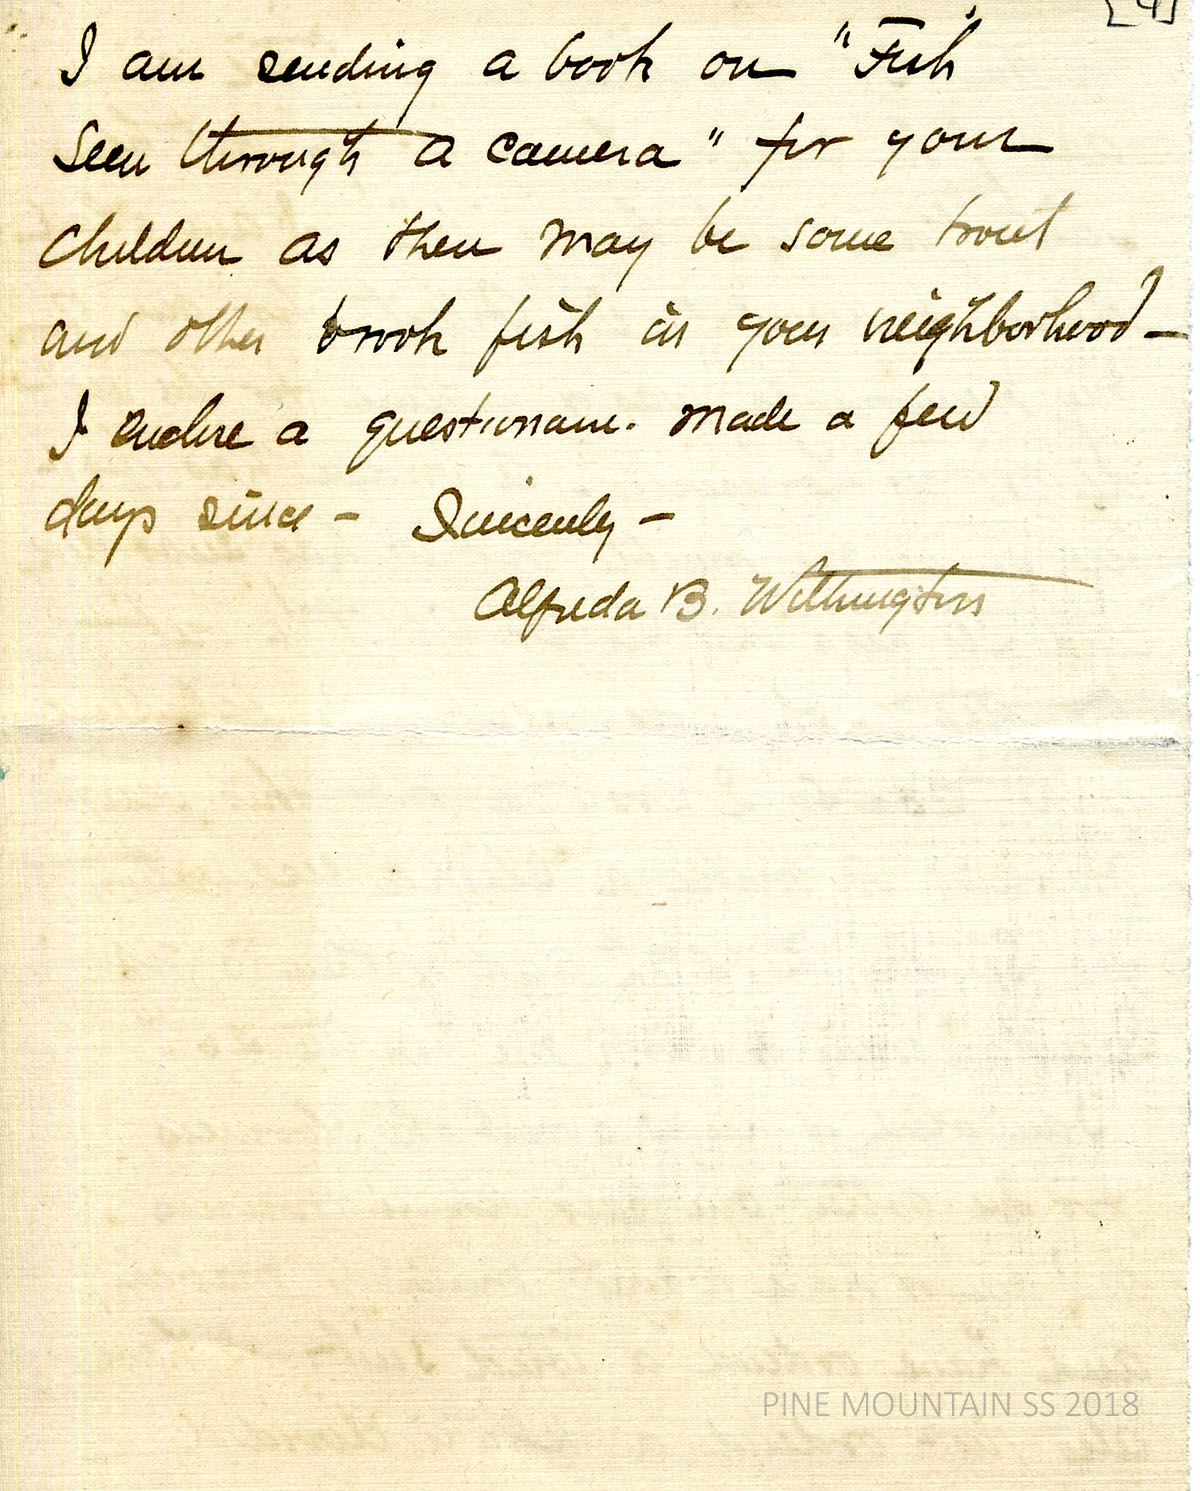 [4]
I am sending a book on "Fish
seen through a camera" for your
children as there may be some trout
and other brook fish in your neighborhood —
I enclose a questionaire. made a few
days since — Sincerely —
Alfreda B. Withington
PINE MOUNTAIN SS 2018